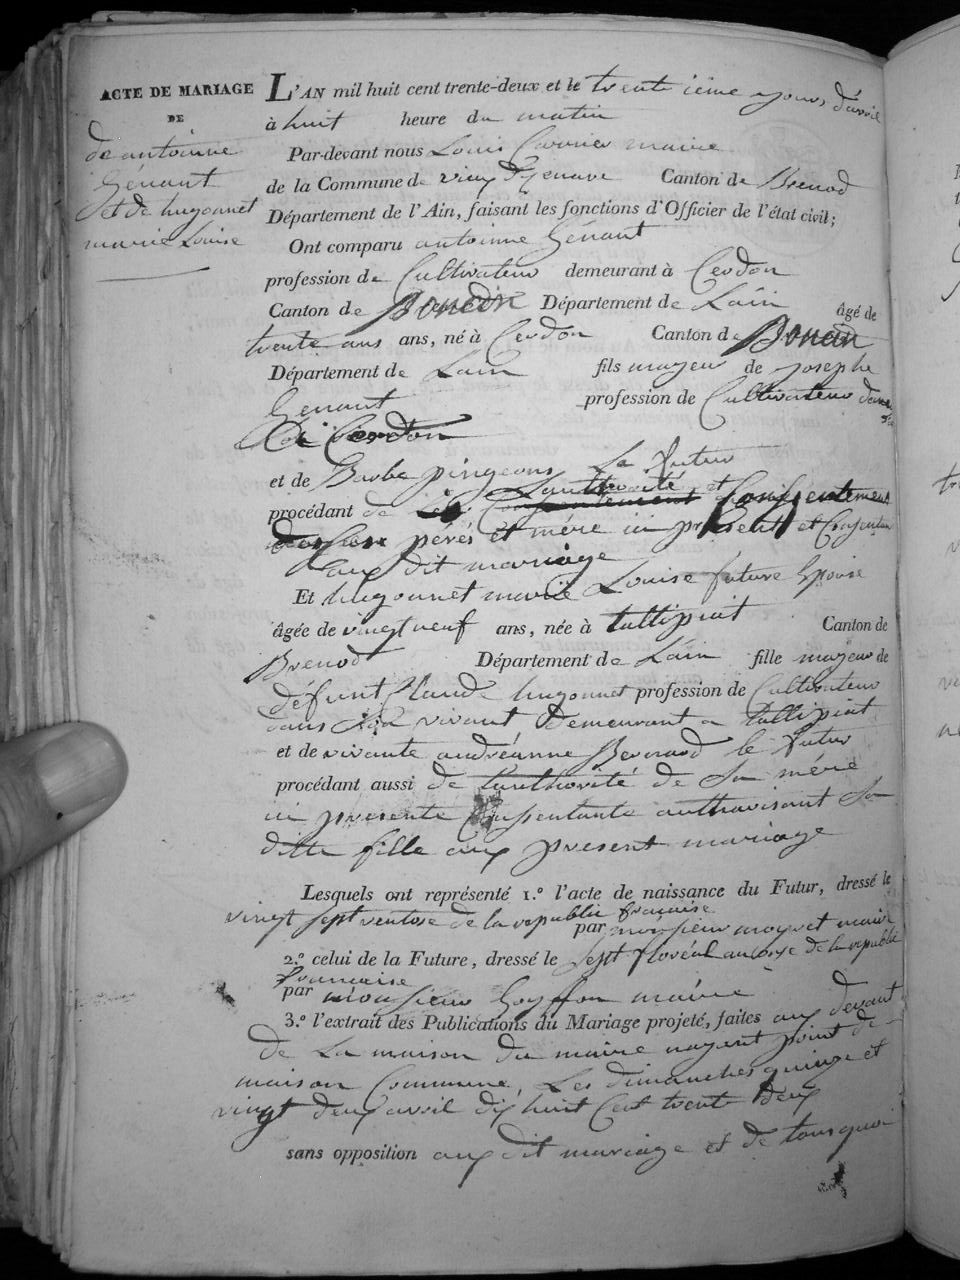 ACTE DE MARIAGE
DE
de antoinne
Génant
et de hugonnet
marie Louise
L'AN mil huit cent trente-deux et le trentieïme jours d'avril
à huit heure du matin
Par-devant nous Louis Carrier maire
de la Commune de vieux d'Jzenave Canton de Brenod
Département de l'Ain, faisant les fonctions d'Officier de l'état civil;
Ont comparu antoinne Génant
profession de Cultivateur demeurant à Cerdon
Canton de Poncin Département de Lain âgé de
trente ans ans, né à Cerdon Canton de Poncin
Département de Lain fils mayeur de Josephe
Genant profession de Cultivateur
à Cerdon
et de Barbe pingeon Le futur
procédant de L'authorité et Consentement
de ses pérés et mére ici présent et
aux dit mariage
Et hugonnet marie Louise future Epouse
âgée de vingt neuf ans, née à tallipiat Canton de
Brenod Département de Lain fille mayeur de
défunt Claude hugonnet profession de Cultivateur
dans son vivant Demeurant a tallipiat
et de vivante andréanne Bernard le futur
procédant aussi de l'authorité de Sa mére
ici presente Consentante authorisant Sa
ditte fille aux present mariage
Lesquels ont représenté 1.º l'acte de naissance du Futur, dressé le
vingt sept ventose de la republic française
par monsieur moyret maire
2.º celui de la Future, dressé le Sept floréal an onze de la republic
francaise
par monsieur Goyffon maire
3.º l'extrait des Publications du Mariage projeté, faites aux devant
de La maison du maire nayant point de
maison Commune, Les dimanches quinze et
vingt deux avril dix huit Cent trente deux
sans opposition aux dit mariage et de tous quoi